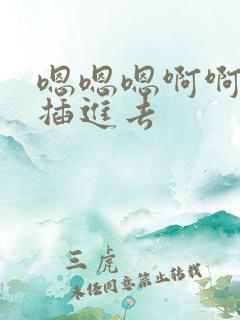 嗯嗯嗯啊啊
插进去
三虎
未经同意禁止转载